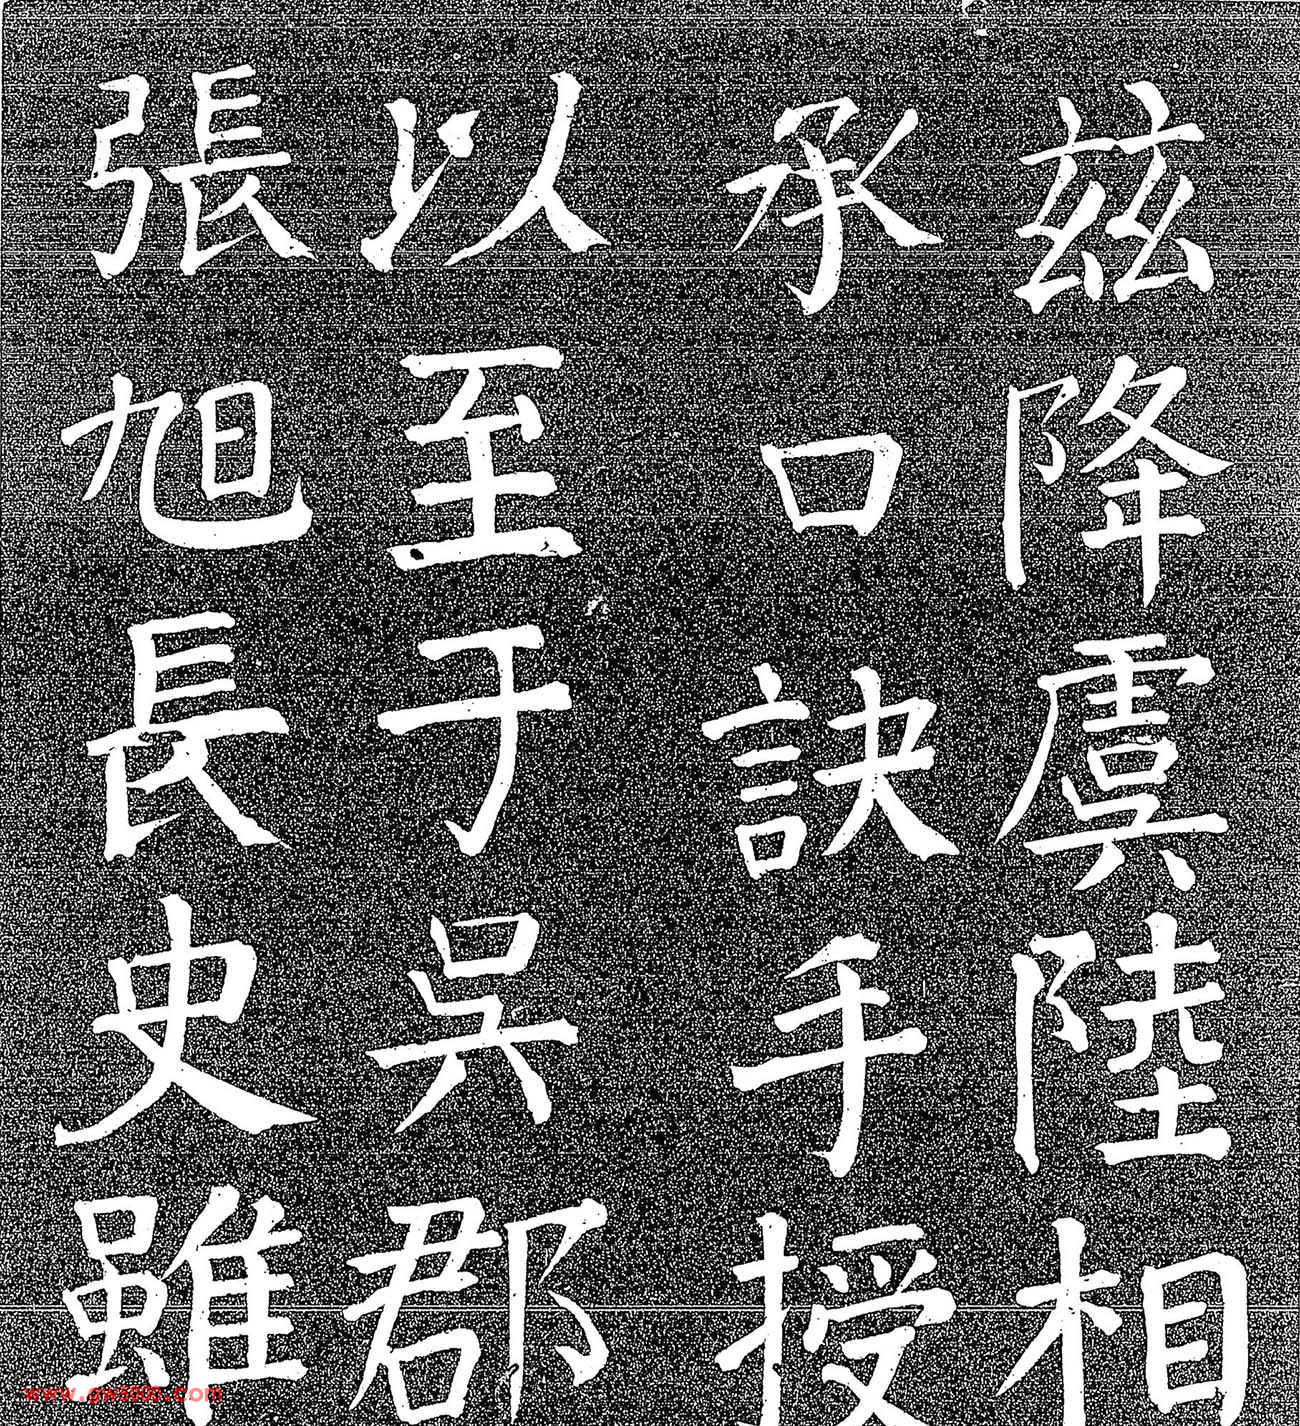 茲降虞陸相
承口訣手授
以至于吳郡
張旭長史雖
www.gw5000.com